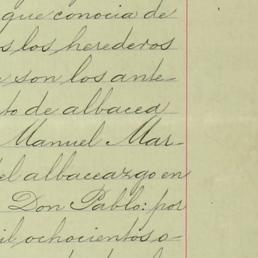 que conocia de
s los herederos
e son los ante-
to de albacea
Manuel Mar-
el albaceazgo en
Don Pablo: por
il, ochocientos o-